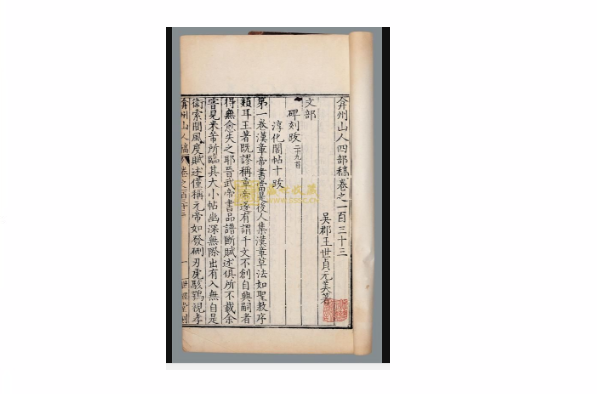 弇州山人四部稿卷之一百三十三
吳郡王世貞元美著
文部
碑刻跋二十九首
淳化閣帖十跋
第一卷漢章帝書當是後人集漢章草法如聖教序
類耳王著既謬稱章帝遂有謂千文不創自興嗣者
得無愈失之耶晉武帝書品譜斷賦述俱所不載余
嘗見米芾所臨其大小帖幽深無際出有入無自是
衛索聞風度賦述僅稱元帝如發硎刃虎駭鶚視孝
弇州山人稿 卷之百
世經堂刻